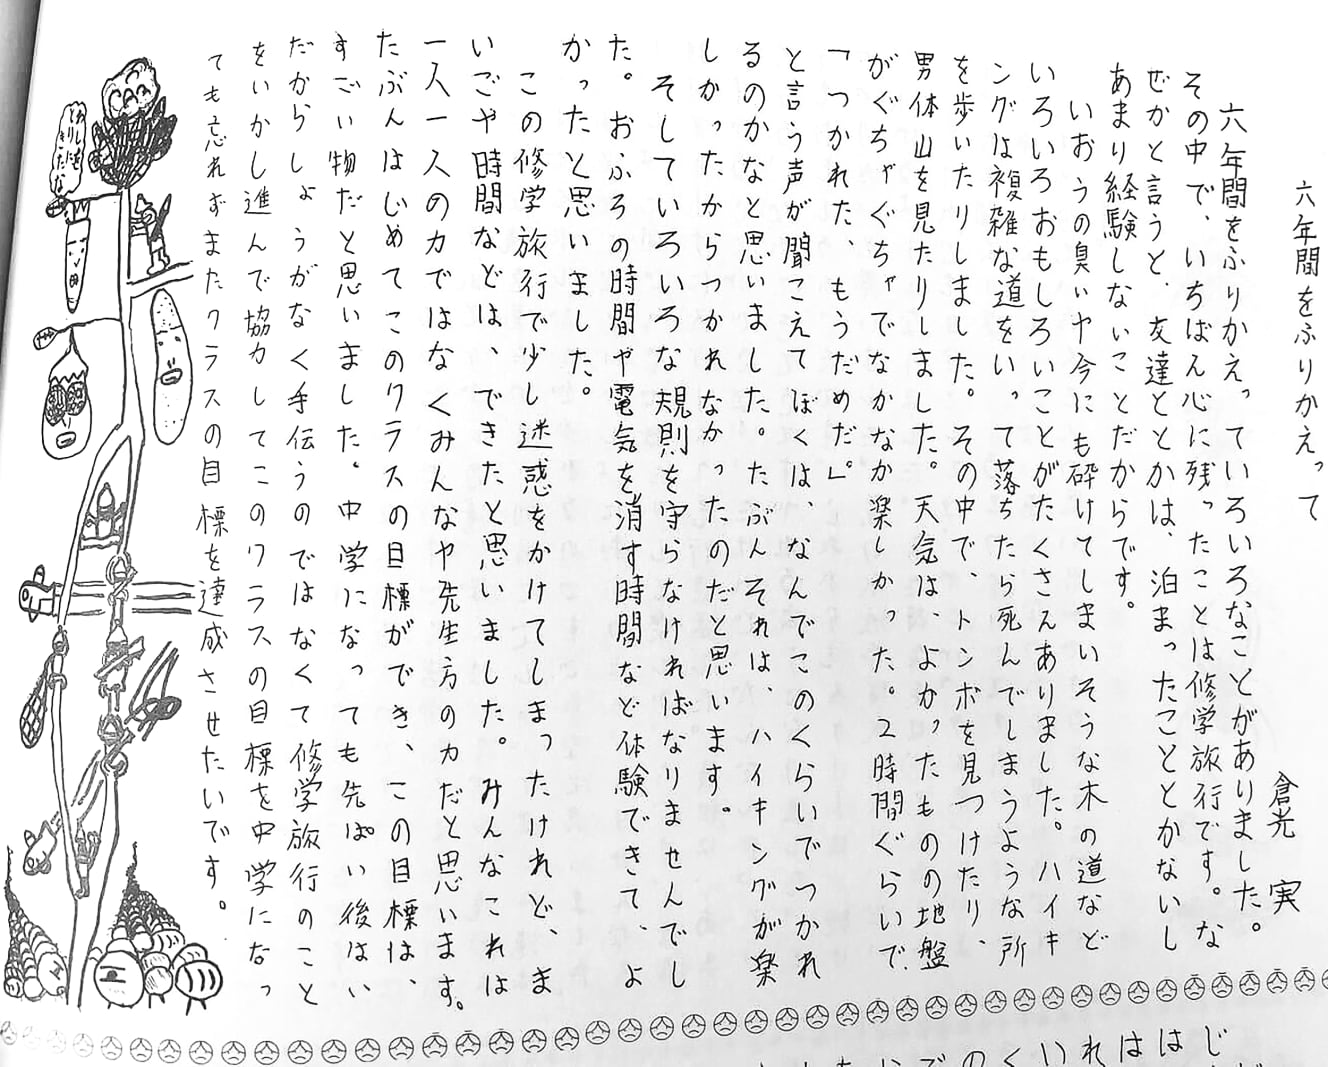 六年間をふりかえって
倉光 実
六年間をふりかえっていろいろなことがありました。
その中で、いちばん心に残ったことは修学旅行です。な
ぜかと言うと、友達ととかは、泊まったこととかないし
あまり経験しないことだからです。
いおうの臭いや今にも砕けてしまいそうな木の道など
いろいろおもしろいことがたくさんありました。ハイキ
ングは複雑な道をいって落ちたら死んでしまうような所
を歩いたりしました。その中で、トンボを見つけたり、
男体山を見たりしました。天気は、よかったものの地盤
がぐちゃぐちゃでなかなか楽しかった。2時間ぐらいで
「つかれた、もうだめだ。」
と言う声が聞こえてぼくは、なんでこのくらいでつかれ
るのかなと思いました。たぶんそれは、ハイキングが楽
しかったからつかれなかったのだと思います。
そしていろいろな規則を守らなければなりませんでし
た。おふろの時間や電気を消す時間など体験できて、よ
かったと思いました。
この修学旅行で少し迷惑をかけてしまったけれど、ま
いごや時間などは、できたと思いました。みんなこれは
一人一人の力ではなくみんなや先生方の力だと思います。
たぶんはじめてこのクラスの目標ができ、この目標は、
すごい物だと思いました。中学になっても先ぱい後はい
だからしょうがなく手伝うのではなくて修学旅行のこと
をいかし進んで協力してこのクラスの目標を中学になっ
ても忘れずまたクラスの目標を達成させたいです。
じ
は
は
れ
い
く
の
で